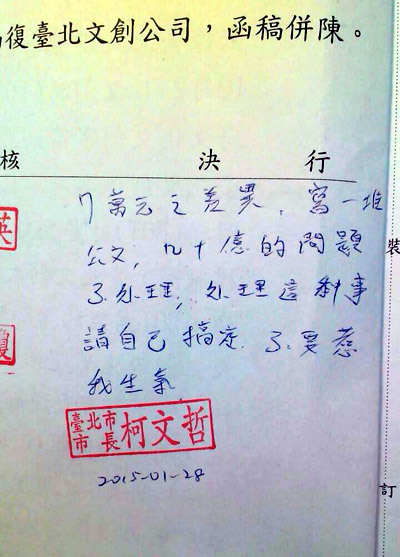 復臺北文創公司，函稿併陳。
核 決行
7萬元之差異，寫一堆
公文，几十億的問題
不处理，处理這種事
請自己搞定，不要惹
我生氣
臺北市市長柯文哲
2015-01-28
英
裝
訂